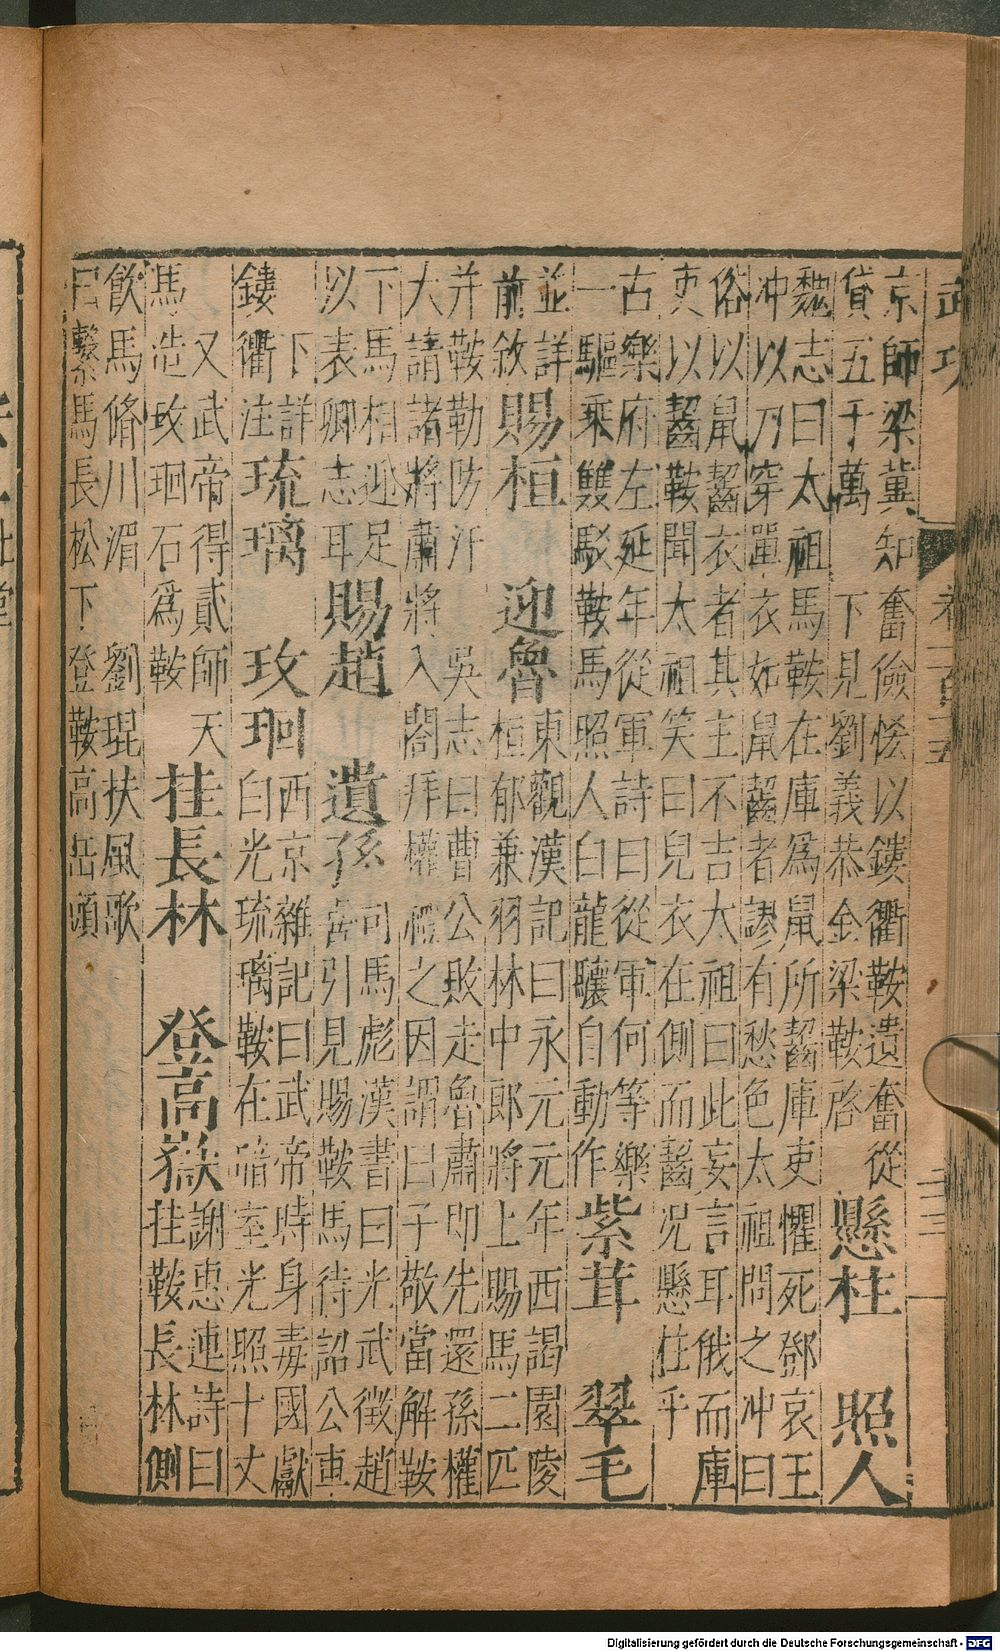 京師梁冀知奮儉恡以鏤衢鞍遺奮從
貸五千萬 下見劉義恭金梁鞍啓
懸柱 照人
魏志曰太祖馬鞍在庫爲鼠所齧庫吏懼死鄧哀王
冲以刀穿單衣如鼠齧者謬有愁色太祖問之冲曰
俗以鼠齧衣者其主不吉太祖曰此妄言耳俄而庫
吏以齧鞍聞太祖笑曰兒衣在側而齧况懸柱乎
古樂府左延年從軍詩曰從軍何等樂
一驅乘雙駁鞍馬照人白龍驤自動作
紫茸 翠毛
並詳
前敘
賜桓 迎魯
東觀漢記曰永元元年西謁園陵
桓郁兼羽林中郎將上賜馬二匹
并鞍勒防汗 吳志曰曹公敗走魯肅即先還孫權
大請諸將肅將入閤拜權禮之因謂曰子敬當解鞍
下馬相迎足
以表卿志耳
賜趙 遺孫
司馬彪漢書曰光武徵趙
憙引見賜鞍馬待詔公車
下詳
鏤衢注
琉璃 玫
西京雜記曰武帝時身毒國獻
白光琉璃鞍在暗室光照十丈
又武帝得貳師天
馬造玫石爲鞍
挂長林 登高嶽
謝惠連詩曰
挂鞍長林側
飲馬脩川湄 劉琨扶風歌
曰繫馬長松下登鞍高岳頭
Digitalisierung gefördert durch die Deutsche Forschungsgemeinschaft - DFG